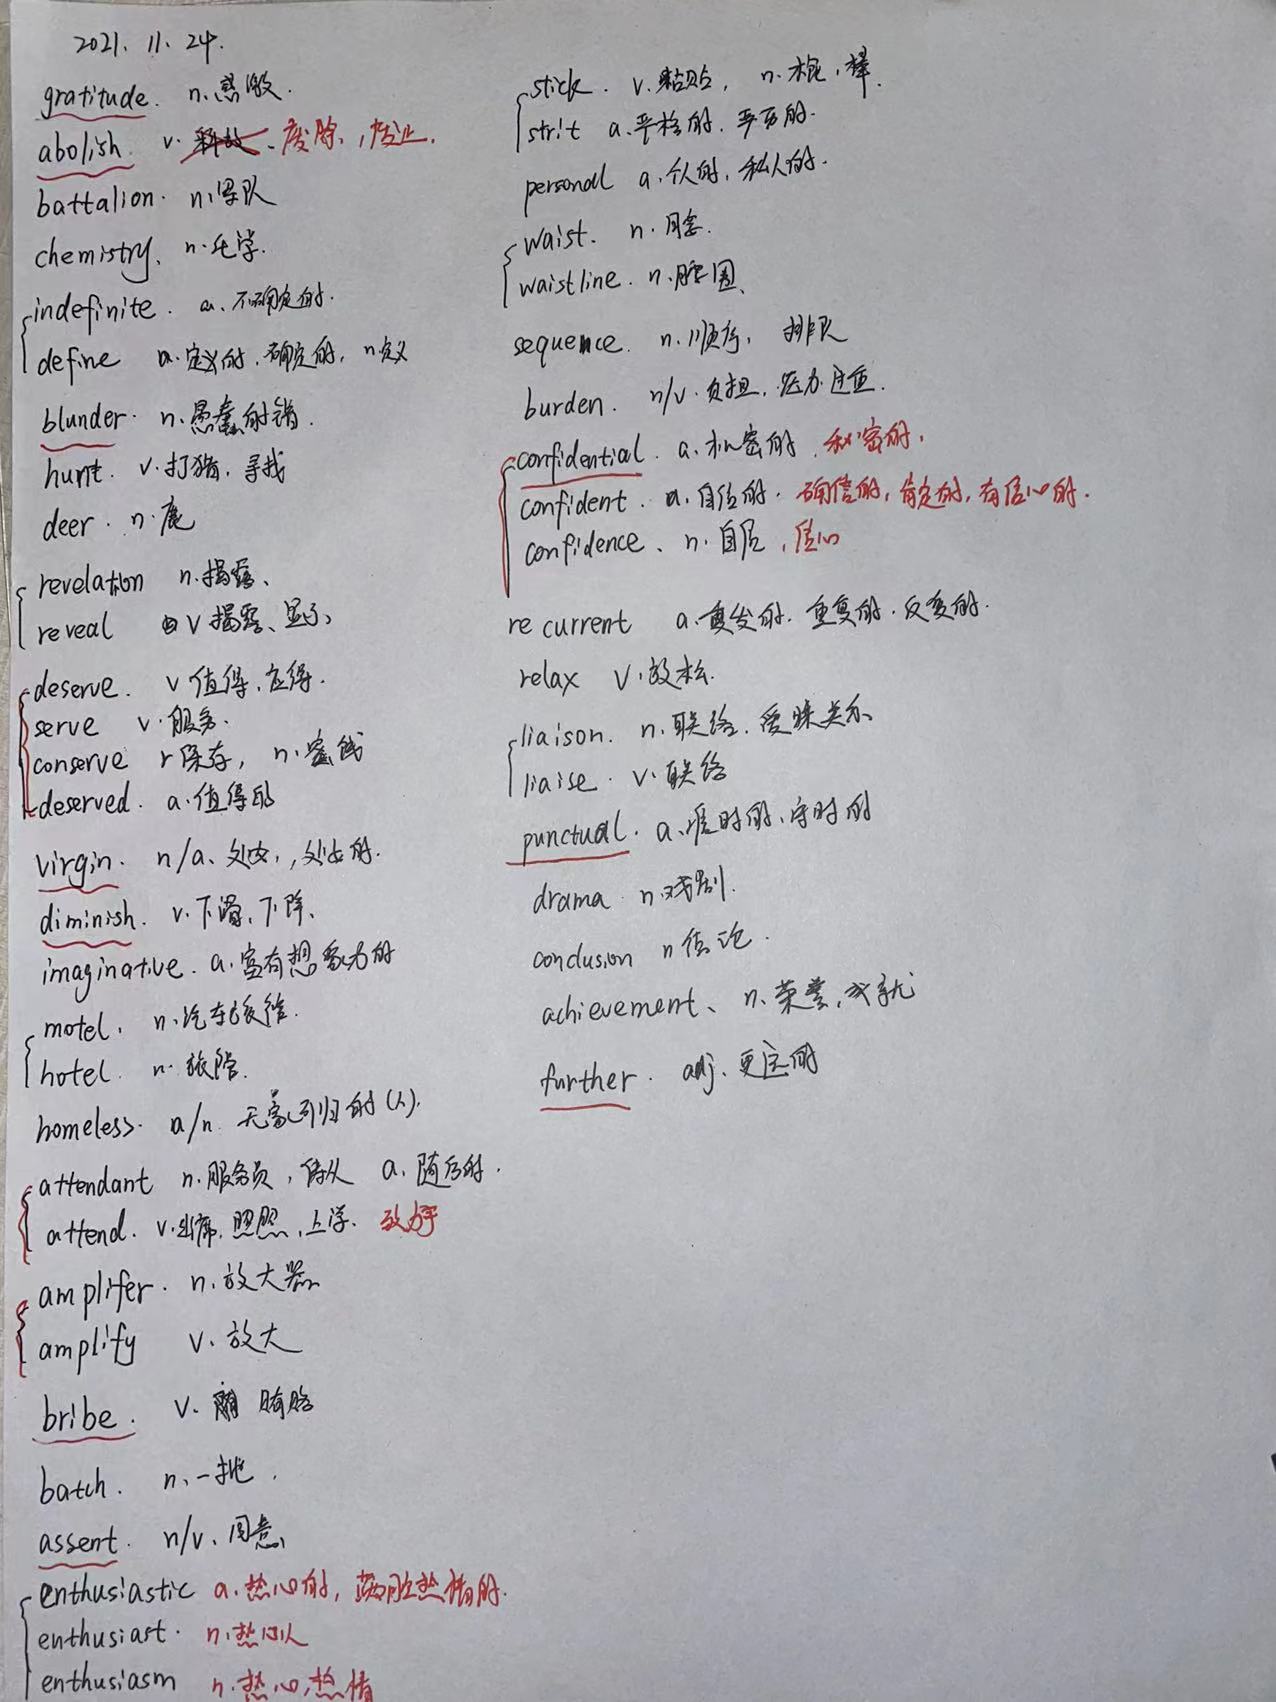 2021. 11. 24.
gratitude. n. 感激.
abolish. v. 释放、废除, 废止.
battalion. n. 军队
chemistry. n. 化学.
indefinite. a. 不确定的.
define a. 定义的. 确定的, n 定义
blunder. n. 愚蠢的错.
hunt. v. 打猎, 寻找
deer. n. 鹿
revelation n. 揭露、
reveal v 揭露、显示
deserve. v 值得, 应得.
serve v. 服务.
conserve v 保存, n.
deserved. a. 值得的
virgin. n/a. 处女, 处女的.
diminish. v. 下滑、下降、
imaginative. a. 富有想象力的
motel. n. 汽车旅馆.
hotel. n. 旅馆.
homeless. a/n. 无家可归的(人).
attendant n. 服务员, 侍从 a. 随后的.
attend. v. 出席, 照顾, 上学. 致力于
amplifer. n. 放大器
amplify v. 放大
bribe. v. 贿赂
batch. n. 一批.
assent. n/v. 同意
enthusiastic a. 热心的, 满腔热情的.
enthusiast. n. 热心人
enthusiasm n. 热心, 热情
stick. v. 粘贴, n. 木棍, 棒.
strit a. 严格的. 严厉的.
personal a. 个人的, 私人的.
waist. n. 腰.
waistline. n. 腰围、
sequence. n. 顺序, 排队
burden. n/v. 负担, 压力 过重.
confidential. a. 机密的, 秘密的,
confident. a. 自信的. 确信的, 肯定的, 有信心的.
confidence、n. 自信, 信心
recurrent a. 复发的. 重复的. 反复的.
relax v. 放松.
liaison. n. 联络. 暧昧关系
liaise. v. 联络
punctual. a. 准时的、守时的
drama. n. 戏剧.
conclusion n 结论.
achievement、n. 荣誉, 成就
further. adj. 更远的